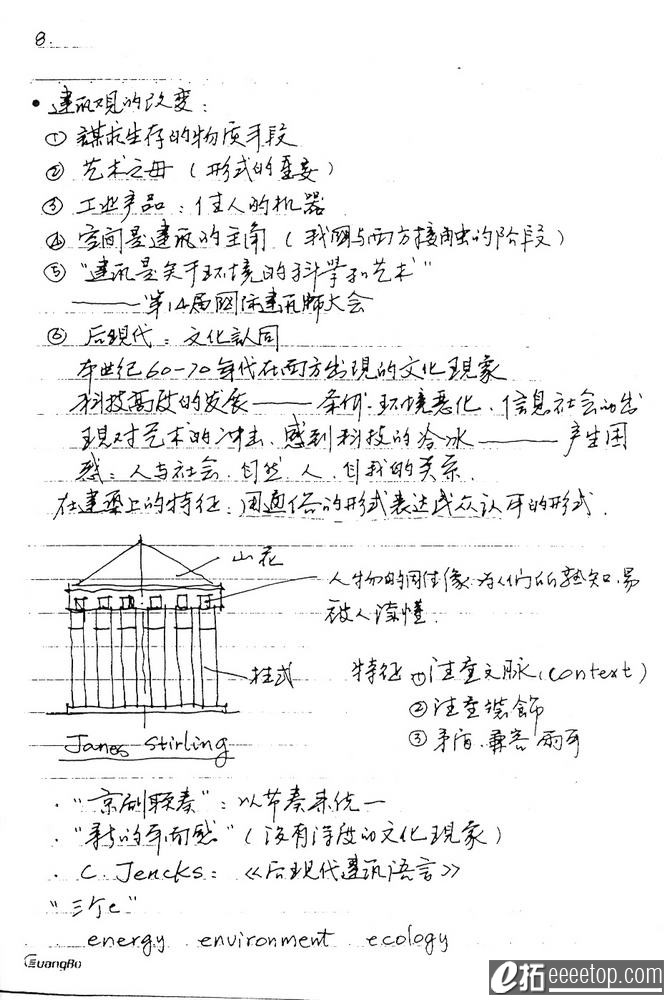 8.
• 建筑观的改变:
① 谋求生存的物质手段
② 艺术之母(形式的重要)
③ 工业产品:住人的机器
④ 空间是建筑的主角(我国与西方接触的阶段)
⑤ “建筑是关于环境的科学和艺术”
——第14届国际建筑师大会
⑥ 后现代:文化認同
本世纪60-70年代在西方出現的文化現象
科技高度的发展——条件.环境恶化、信息社会的出
现对艺术的冲击、感到科技的冷冰——产生困
惑:人与社会.自然.人.自我的关系.
在建築上的特征:用通俗的形式表达民众认可的形式.
山花
人物的周佳像.为人们所熟知.易
被人读懂.
柱式
特征 ①注重文脉(context)
②注重裝飾
③矛盾.兼容
James Stirling
·“京剧联奏”:以节奏来统一
·“新的平面感”(没有深度的文化現象)
· C. Jencks:《后现代建筑语言》
“三个e”
energy environment ecology
GuangBo
e拓 eeeetop.com